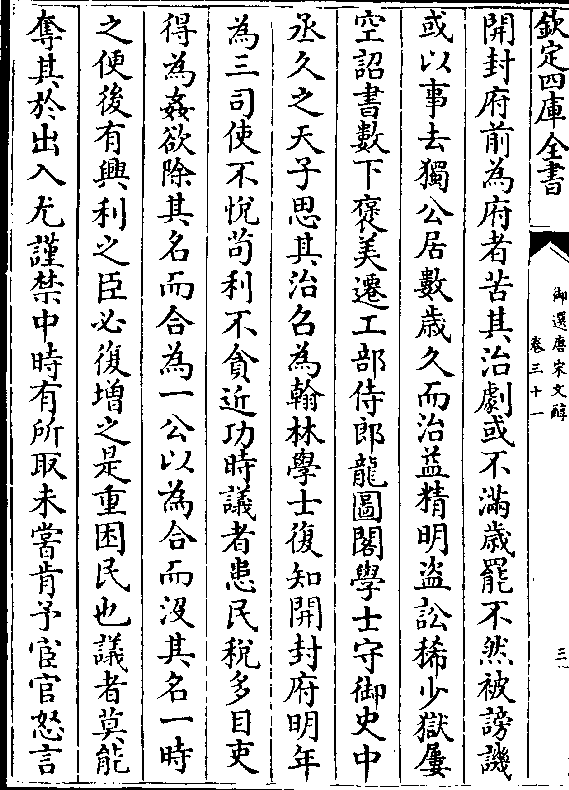 欽定四庫全書
御選唐宋文醇
卷三十一
三
開封府前為府者苦其治劇或不滿歳罷不然被謗譏
或以事去獨公居數歳久而治益精明盗訟稀少獄屢
空詔書數下褒美遷工部侍郎龍圖閣學士守御史中
丞久之天子思其治召為翰林學士復知開封府明年
為三司使不悅茍利不貪近功時議者患民稅多目吏
得為姦欲除其名而合為一公以為合而沒其名一時
之便後有興利之臣必復增之是重困民也議者莫能
奪其於出入尤謹禁中時有所取未嘗肯予宦官怒言